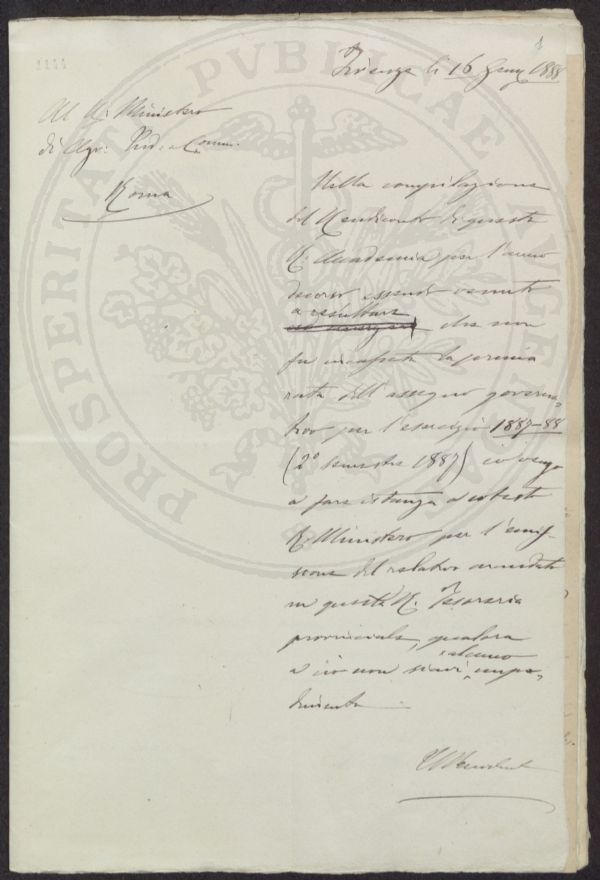 1
Firenze li 16 Genn 1888
Al R. Ministero
di Agr. Ind. e Comm.
Roma
Nella compilazione
del Rendiconto di questa
R. Accademia per l'anno
decorso essendo venuto
a resultare
che non
fu incassata la prima
rata dell'assegno governa-
tivo per l'esercizio 1887-88
(2º semestre 1887) io vengo
a fare istanza a cotesto
R. Ministero per l'emis-
sione del relativo mandato
in questa R. Tesoreria
provinciale, qualora
alcuno
a ciò non siavi impe-
dimento
Il Presidente
PROSPERITATI PVBLICAE AVGENDAE